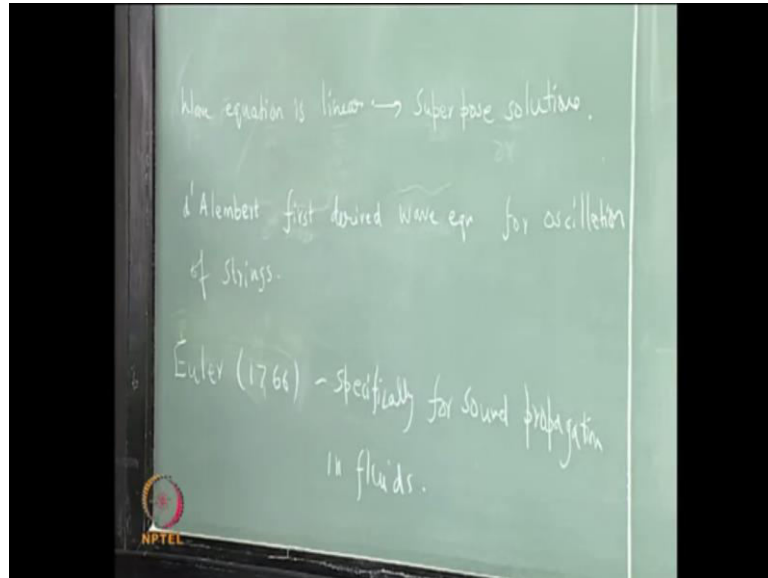 Wave equation is linear → Superpose solutions.
d'Alembert first derived wave eqn for oscillation
of strings.
Euler (1766) - specifically for sound propagation
in fluids.
NPTEL